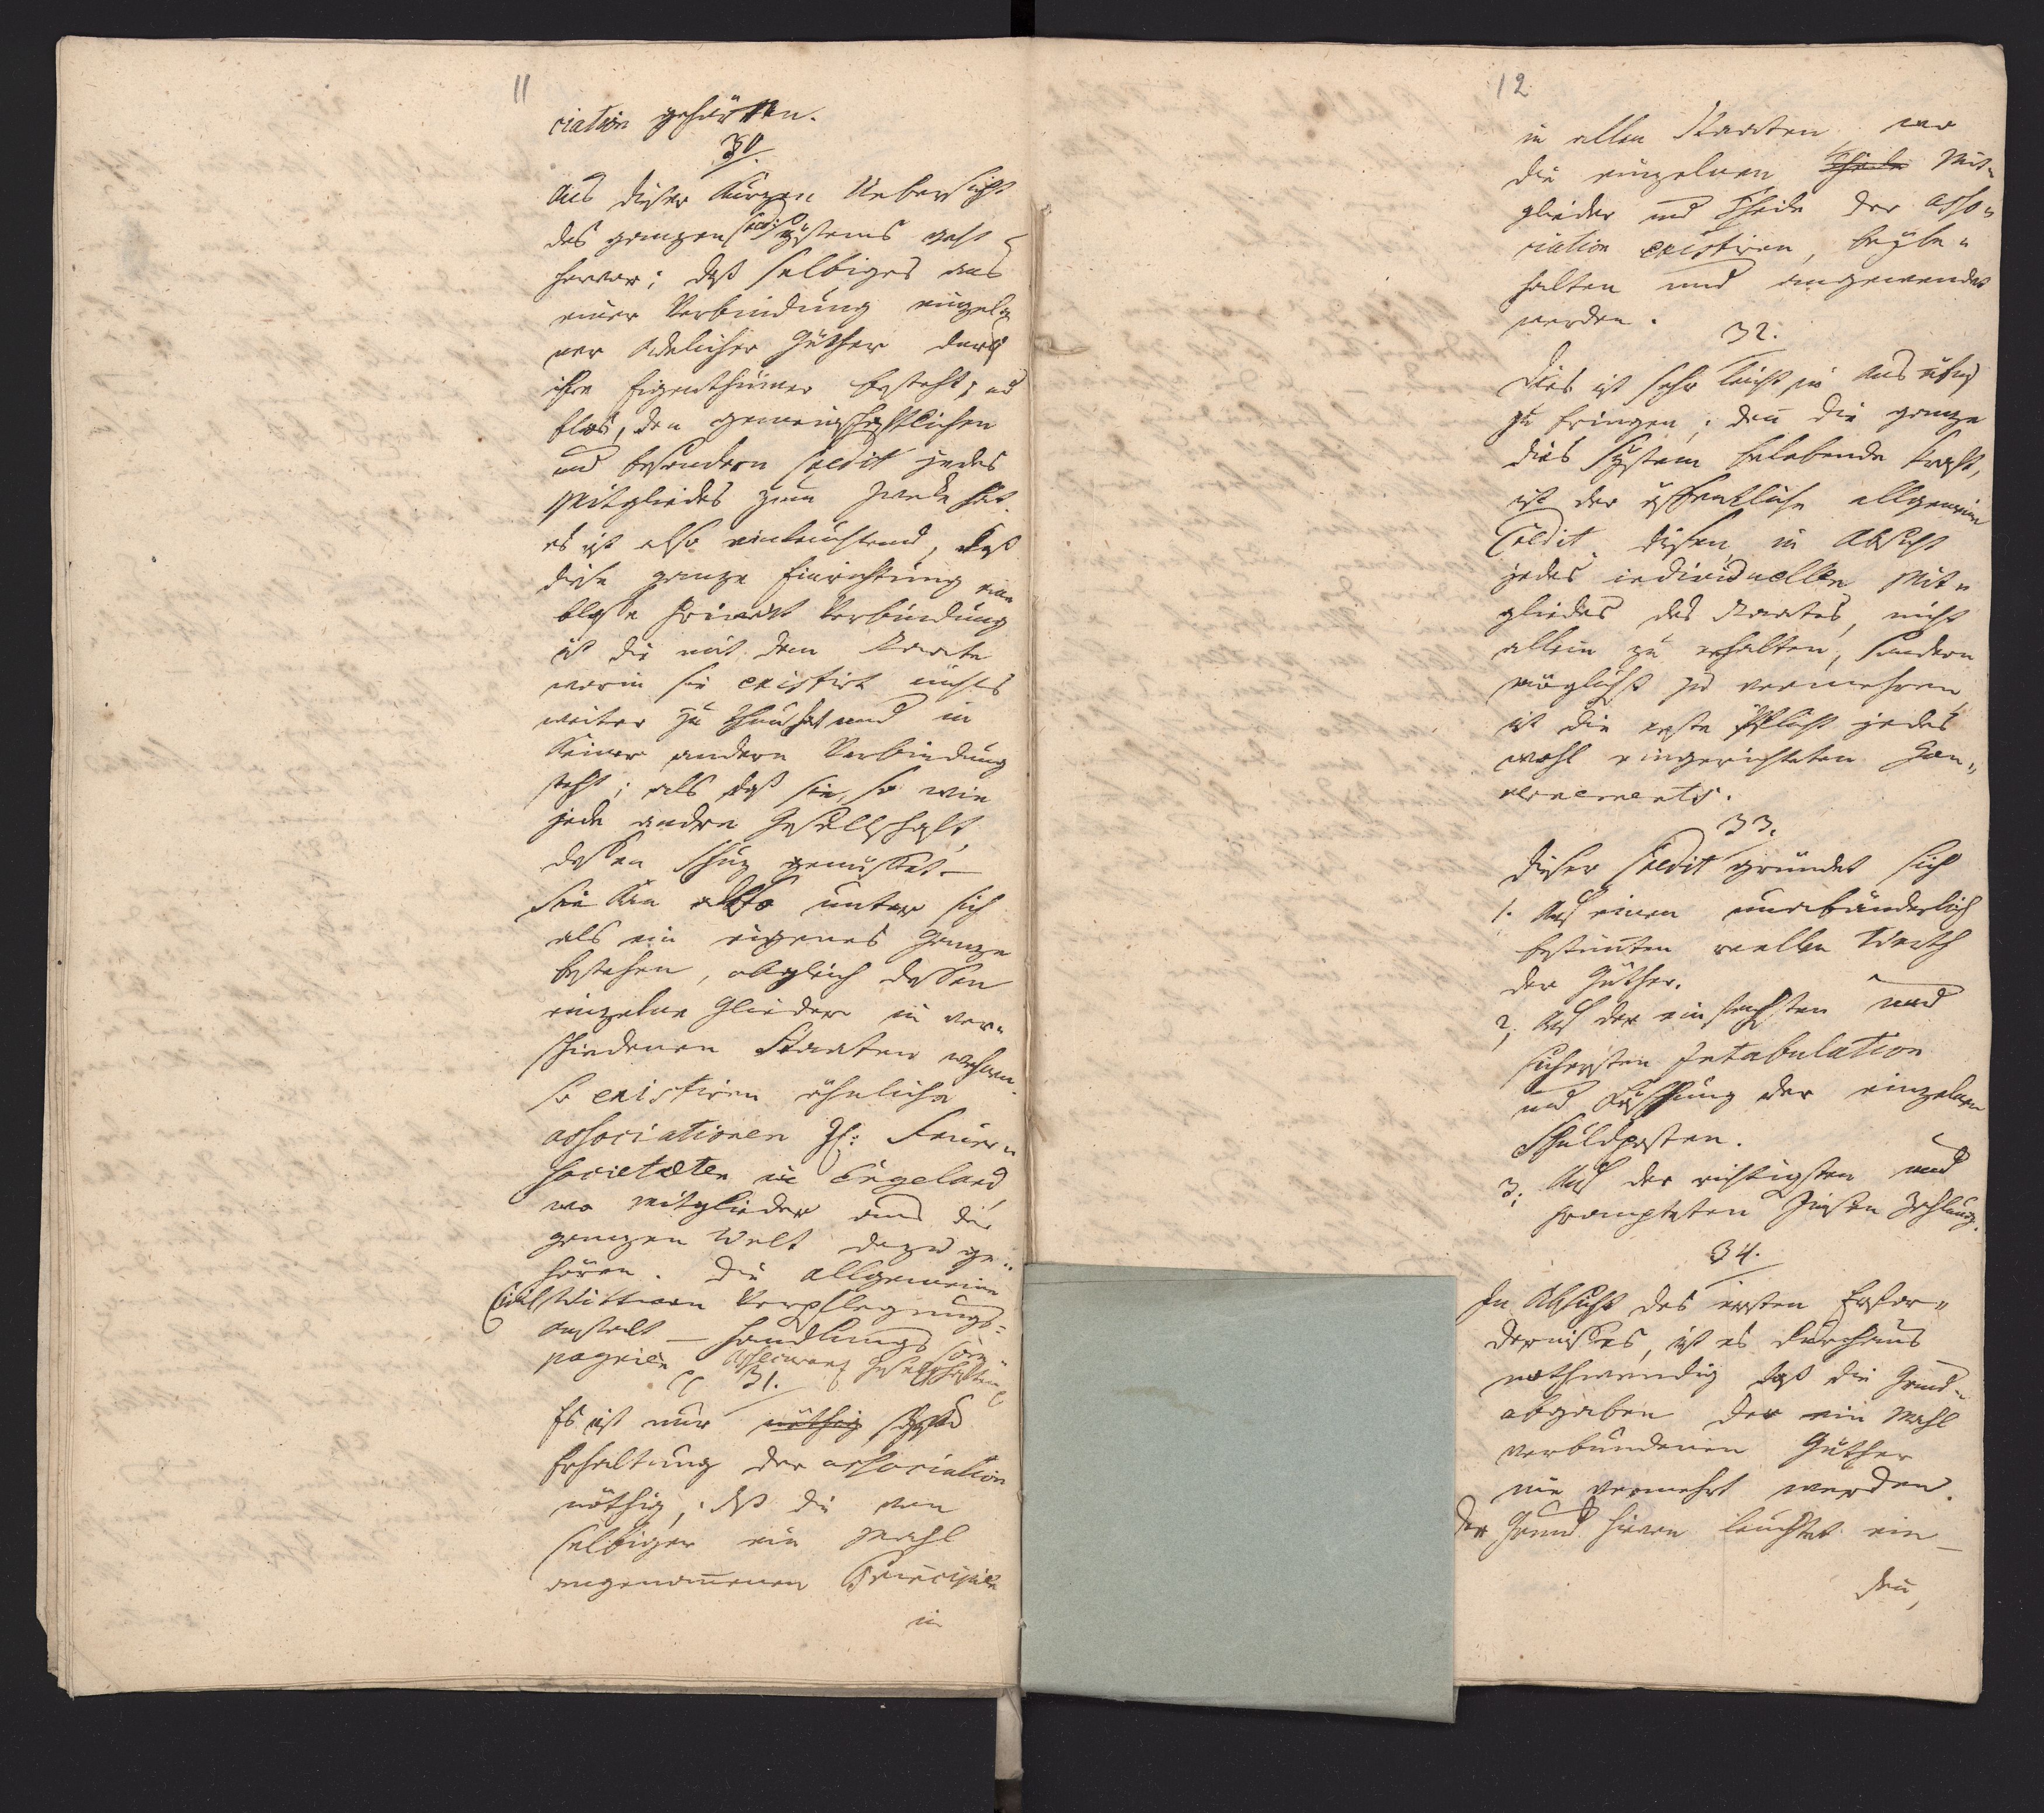 11
ciation gehörten.
30.
Aus dieser kurzen Uebersicht
des ganzen Credit Systems geht
hervor; daß selbiges aus
einer Verbindung einzel¬
ner Adelicher Güther durch
ihre Eigenthümer besteht, u
blos, den gemeinschaftlichen
und besondern Credit jedes
Mitgliedes zum Zweke hat.
es ist also einleuchtend, daß
diese ganze Einrichtung eine
bloße privat Verbindung
ist die mit dem Staate
worin sie existirt nichts
weiter zu thun hat und in
keiner andern Verbindung
steht; als daß sie, so wie
jede andre Gesellschaft,
deßen Schuz genüßet. —
Sie kan also unter sich
als ein eigenes Ganze
bestehen, obgleich deßen
einzelne Glieder in ver¬
schiedenen Staaten wohnen.
so existiren ähnliche
associationen Zb: Feuer¬
societæten in Engeland,
wo Mitglieder aus der
ganzen Welt dazu ge¬
hören. Die Allgemeine
Civil Wittwen Verpflegungs¬
anstalt — Handlungs Com¬
pagnien Assecuranz Gesellschaften
31.
Es ist nur nöthig
Erhaltung der association
nöthig, daß die von
selbiger ein Mahl
angenomenen Principien
in
12
in allen Staaten wo
die einzelnen Theile Mit¬
glieder und Theile der asso¬
ciation existiren, beybe¬
halten und angewendet
werden.
32.
Dies ist sehr leicht in Ausübung
zu bringen; den die ganze
dies System belebende Kraft,
ist der öffentliche allgemeine
Credit. diesen in Absicht
jedes individuellen Mit¬
gliedes des Staates, nicht
allein zu erhalten, sondern
möglichst zu vermehren,
ist die erste Pflicht jedes
wohl eingerichteten Gou¬
vernements.
33.
Dieser Credit gründet sich
1. Auf einen unabänderlich
bestimten reellen Werth
der Güther.
2. Auf der einfachsten und
sichersten Intabulation
und Löschung der einzelnen
Schuldposten.
3. Auf der richtigsten und
promptesten Zinsen Zahlung.
34.
In Absicht des ersten Erfor¬
dernißes, ist es durchaus
nothwendig daß die Grund¬
abgaben der ein Mahl
verbundenen Güther
nie vermehrt werden.
Der Grund hievon leuchtet ein —
den,